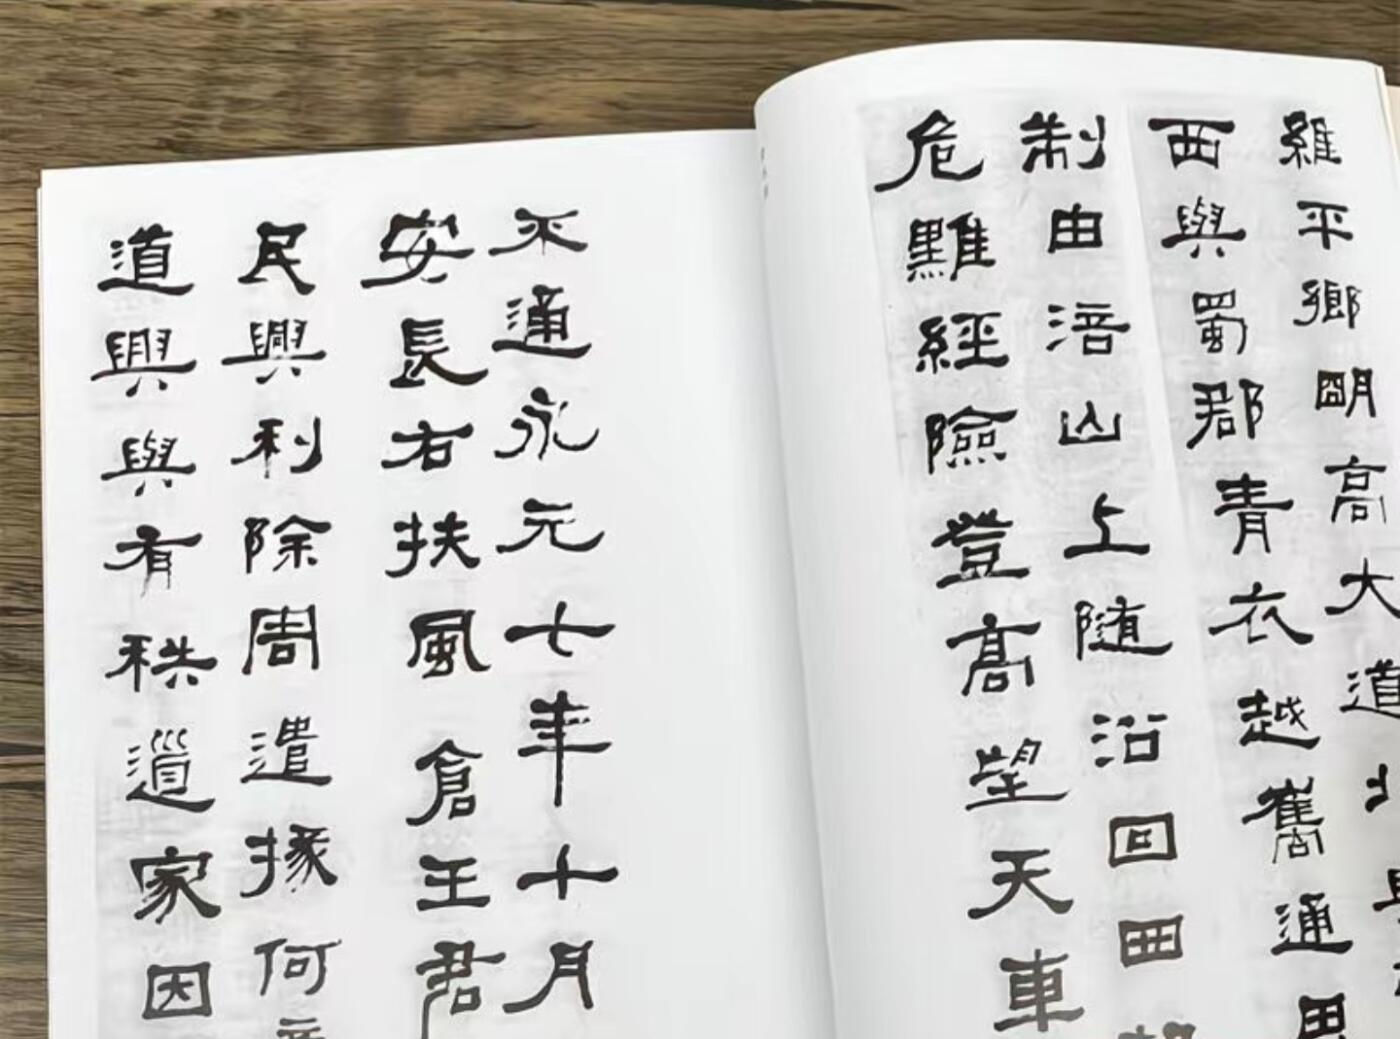 羅平鄉明高大道北
西與蜀郡青衣越嶲通
制由涪山上随沿回曲
危難經險登高望天車
不通永元七年十月
安長右扶風倉王君
民興利除周遣掾何
道興與有秩家因